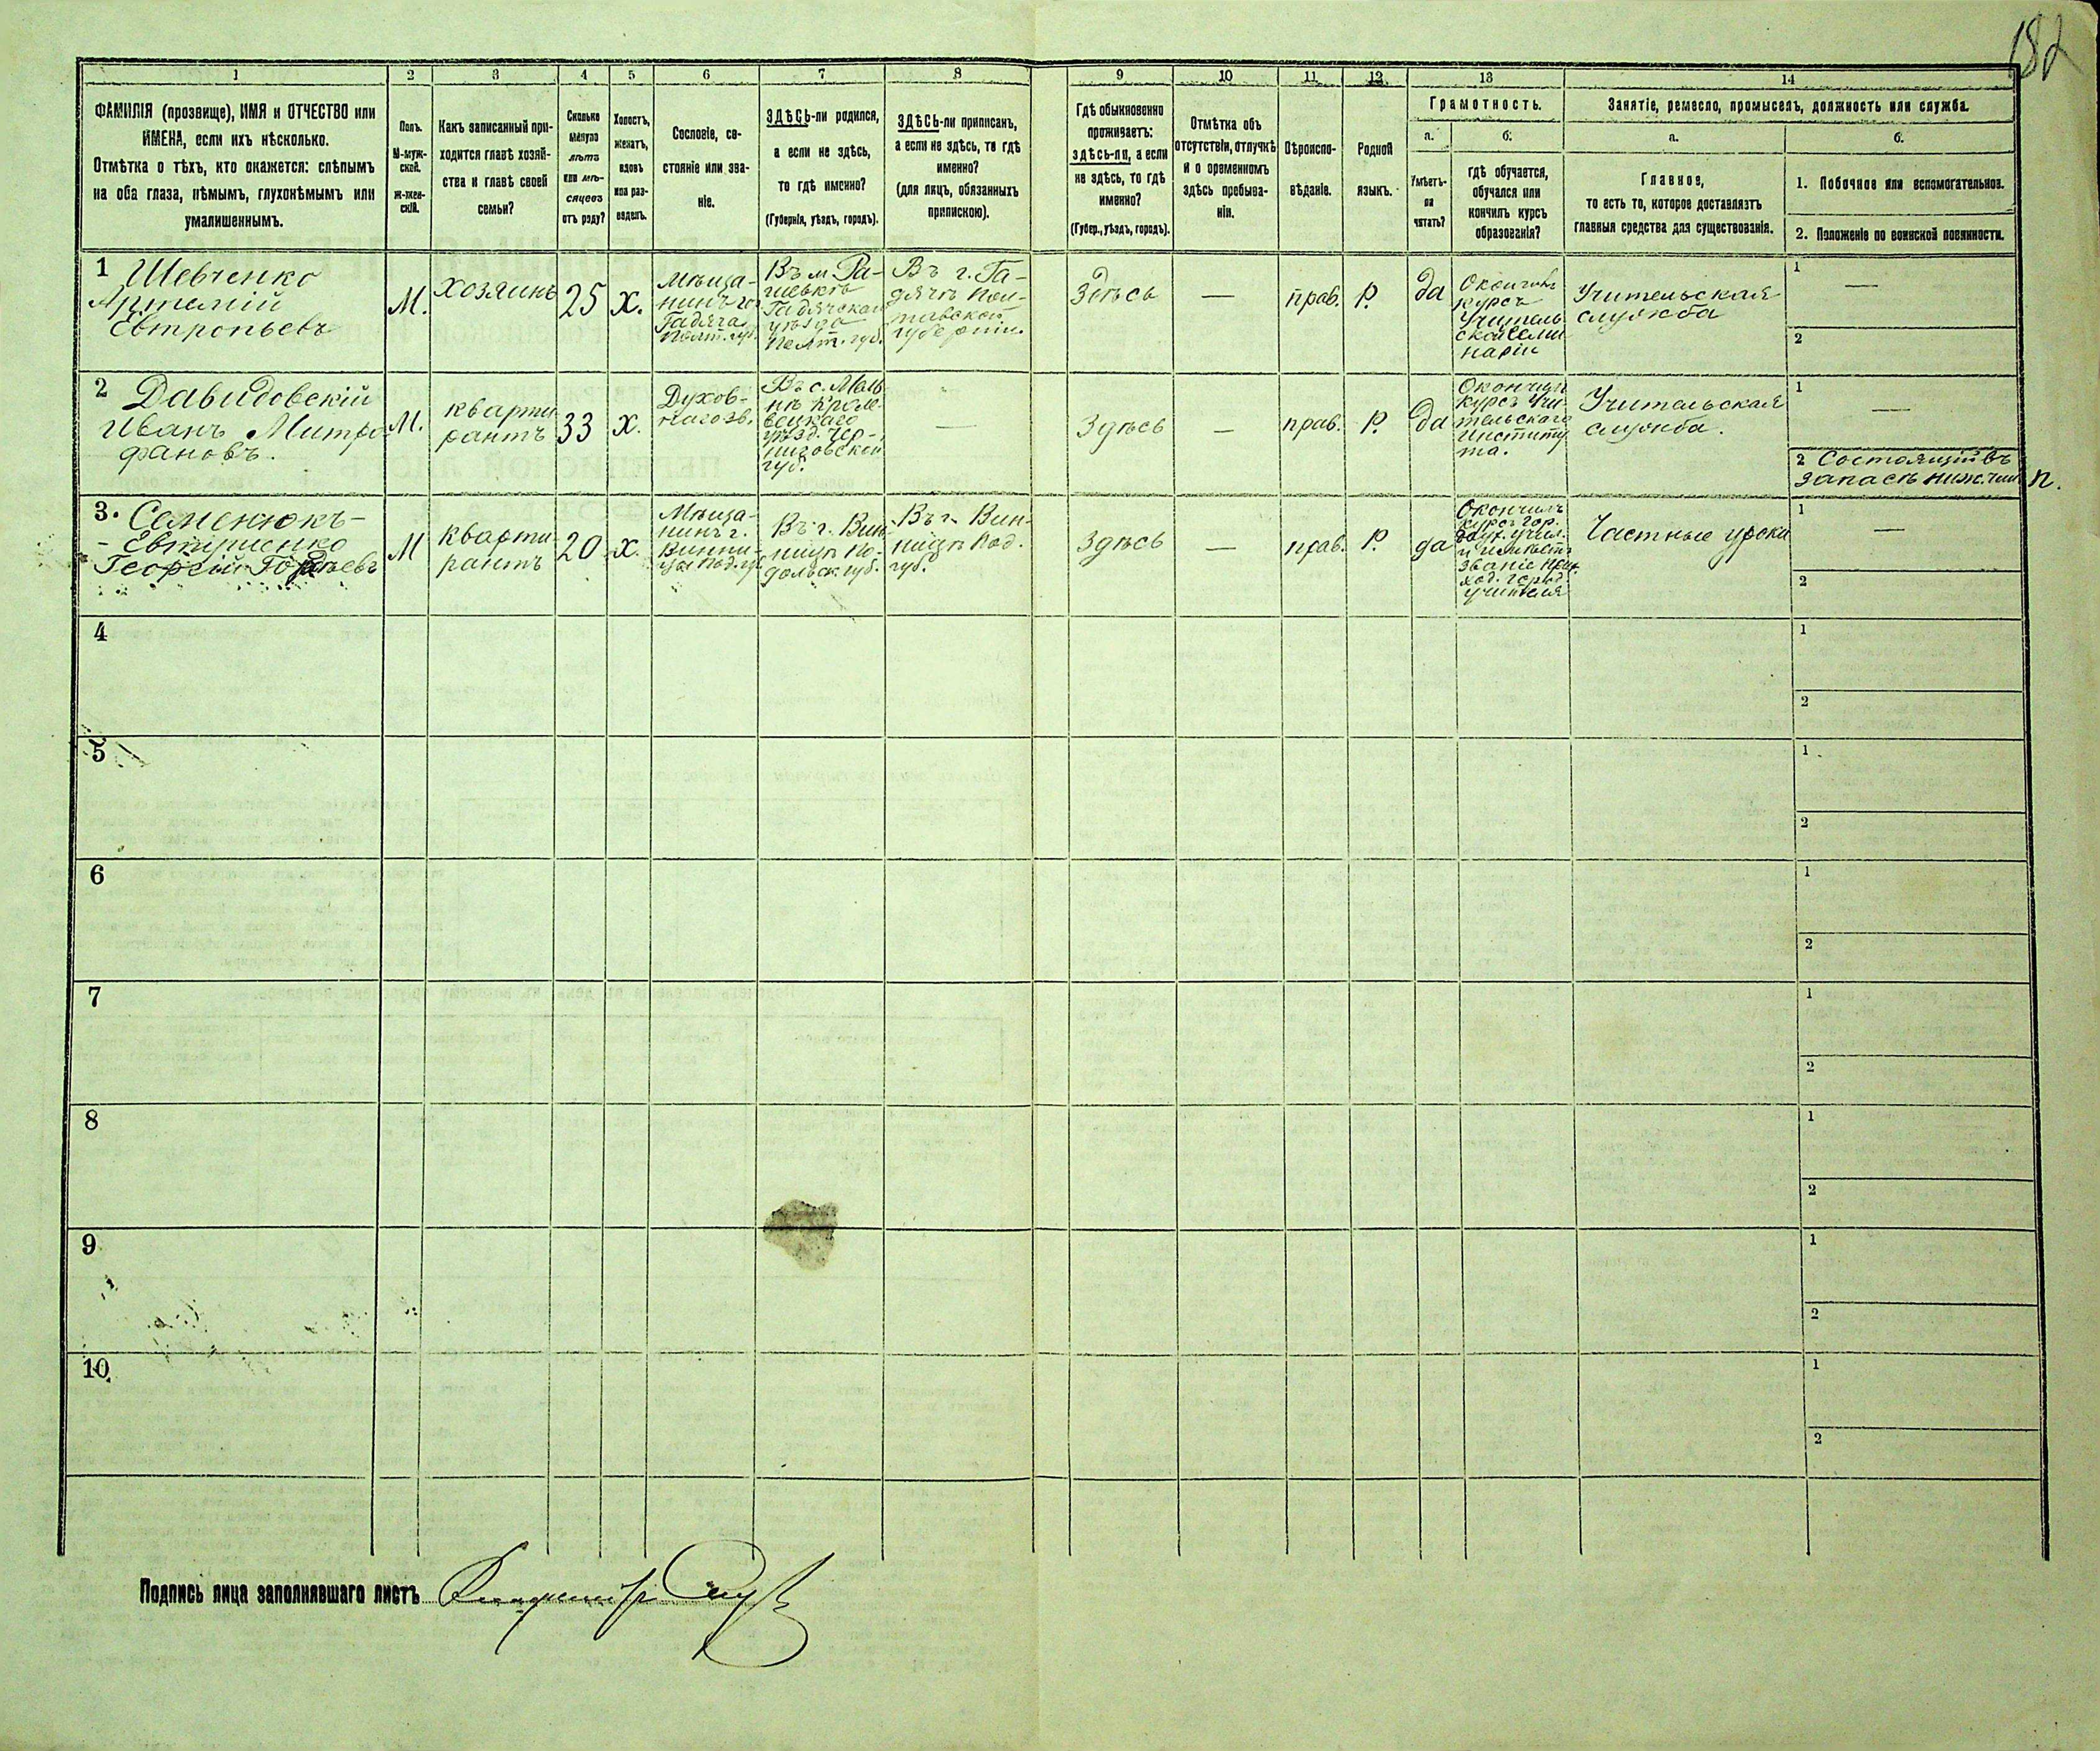 182
1 2 3 4 5 6 7 8 9 10 11 12 13 14
ФАМИЛІЯ (прозвище), ИМЯ и ОТЧЕСТВО или
ИМЕНА, если ихъ нѣсколько.
Отмѣтка о тѣхъ, кто окажется: слѣпымъ
на оба глаза, нѣмымъ, глухонѣмымъ или
умалишеннымъ.
Полъ.
М-муж-
ской.
Ж-жен-
скій.
Какъ записанный при-
ходится главѣ хозяй-
ства и главѣ своей
семьи?
Сколько
минуло
лѣтъ
или мѣ-
сяцевъ
отъ роду?
Холостъ,
женатъ,
вдовъ
или раз-
веденъ.
Сословіе, со-
стояніе или зва-
ніе.
ЗДѢСЬ-ли родился,
а если не здѣсь,
то гдѣ именно?
(Губернія, уѣздъ, городъ).
ЗДѢСЬ-ли приписанъ,
а если не здѣсь, то гдѣ
именно?
(для лицъ, обязанныхъ
припискою).
Гдѣ обыкновенно
проживаетъ:
здѣсь-ли, а если
не здѣсь, то гдѣ
именно?
(Губер., уѣздъ, городъ).
Отмѣтка объ
отсутствіи, отлучкѣ
и о временномъ
здѣсь пребыва-
ніи.
Вѣроиспо-
вѣданіе.
Родной
языкъ.
Грамотность.
а.
Умѣетъ-
ли
читать?
б.
гдѣ обучается,
обучался или
кончилъ курсъ
образованія?
Занятіе, ремесло, промыселъ, должность или служба.
а.
Главное,
то есть то, которое доставляетъ
главныя средства для существованія.
б.
1. Побочное или вспомогательное.
2. Положеніе по воинской повинности.
1 Шевченко
Артемій
Евтропьевъ
М.
хозяинъ
25
х.
Мѣща-
нинъ гор.
Гадяча
Полт. губ.
Въ м. Ра-
шевкѣ
Гадячскаго
уѣзда
Полт. губ.
Въ г. Га-
дячѣ Пол-
тавской
губерніи.
Здѣсь
—
прав.
Р.
да
Окончилъ
курсъ
Учитель-
ской Семи
наріи
Учительская
служба
1 —
2
2 Давидовскій
Иванъ Митро
фановъ.
М.
кварти
рантъ
33
х.
Духов-
наго зв.
Въ с.
Кроле-
вецкаго
уѣзд. Чер-
ниговской
губ.
—
Здѣсь
—
прав.
Р.
да
Окончилъ
курсъ Учи-
тельскаго
Институ
та.
Учительская
служба.
1 —
2 Состоящій въ
запасѣ ниж. чин
3. Семенюкъ-
-
Георгій
М
кварти
рантъ
20
х.
Мѣща-
нинъ г.
Винни-
цы Под. гу.
Въ г. Вин-
ницѣ По-
дольск. губ.
Въ г. Вин-
ницѣ Под.
губ.
Здѣсь
—
прав.
Р.
да
Окончилъ
курсъ гор.
учил.
и
званіе
город.
учителя
Частные уроки
1 —
2
4 1
2
5 1
2
6 1
2
7 1
2
8 1
2
9 1
2
10 1
2
Подпись лица заполнявшаго листъ